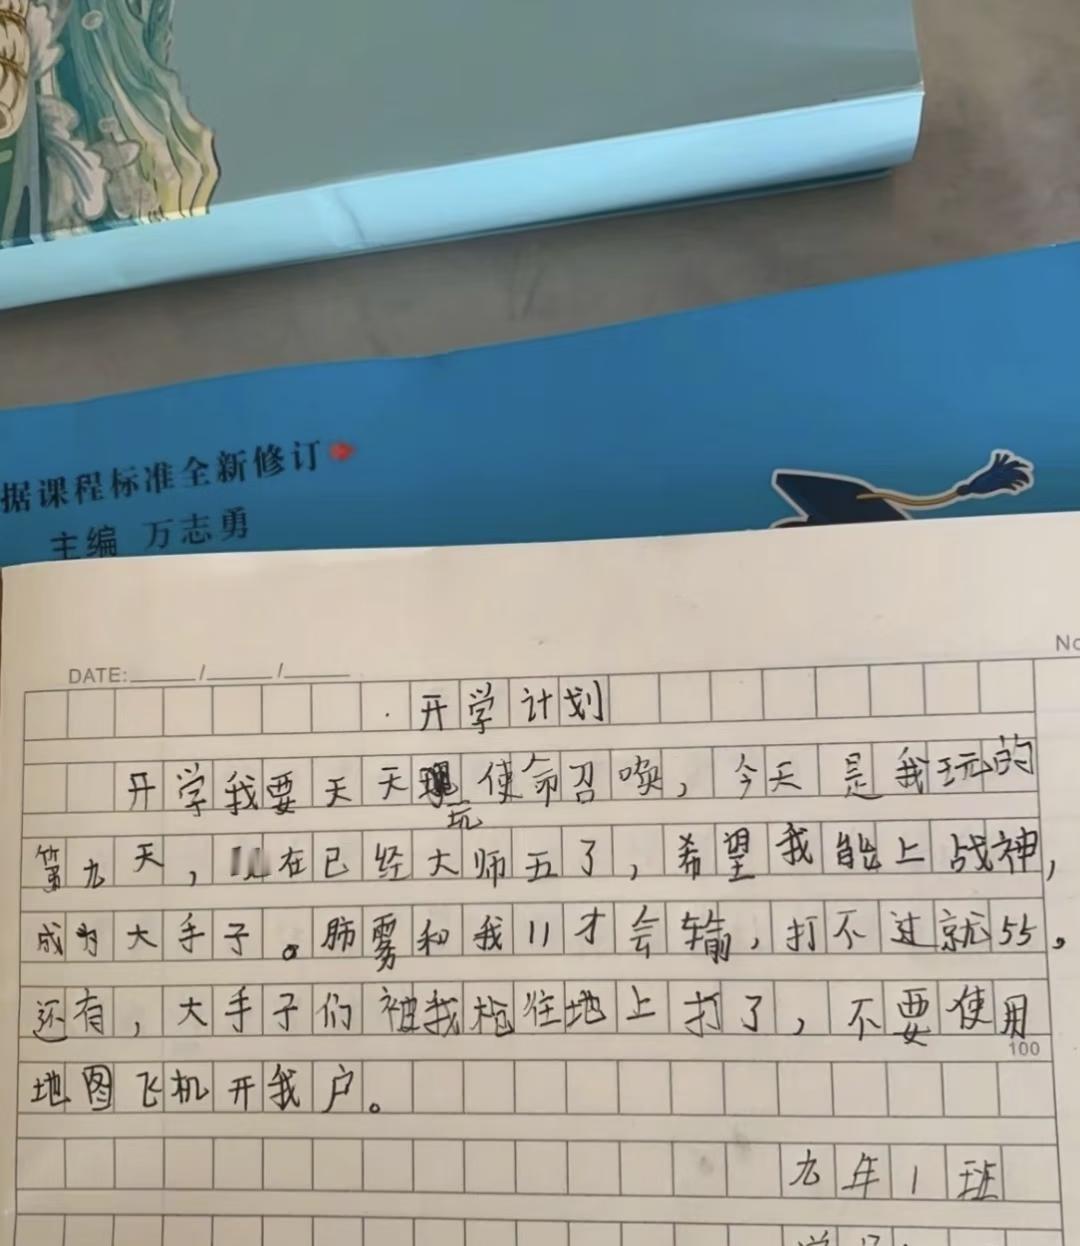 据课程标准全新修订
主编 万志勇
No
DATE: / /
开学计划
开学我要天天玩使命召唤，今天是我玩的
第九天，在已经大师五了，希望我能上战神，
成为大手子。肺雾和我11才会输，打不过就55。
还有，大手子们被我枪往地上打了，不要使用
100
地图飞机开我户。
九年1班